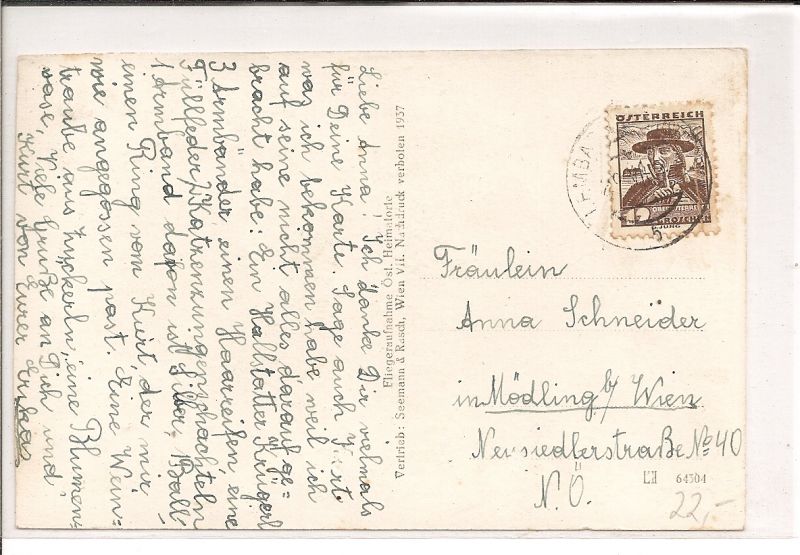 Liebe Anna! Ich danke Dir vielmals
für Deine Karte. Sage auch Kurt
was ich bekommen habe weil ich
auf seine nicht alles darauf ge=
bracht habe: Ein Hallstätter Krügerl
3 Armbänder, einen Haarreifen eine
Füllfeder, 2 Katzenzungenschachteln
1 Armband dafon ist Silber, 1 Ball,
einen Ring vom Kurt, der mir
wie angegossen past. Eine Wein=
traube aus Zuckerln, eine Blumen=
vase, Viele Grüße an Dich und
Kurt von Eurer Erika
Fliegeraufnahme Öst. Heimatorte
Vertrieb: Seemann & Rasch, Wien VII. Nachdruck verboten 1937
ÖSTERREICH
12
OBERÖSTERREICH
GROSCHEN
JUNG
LEMBA
Fräulein
Anna Schneider
in Mödling b/ Wien
Neusiedlerstraße No 40
N.Ö.
64304
22,-